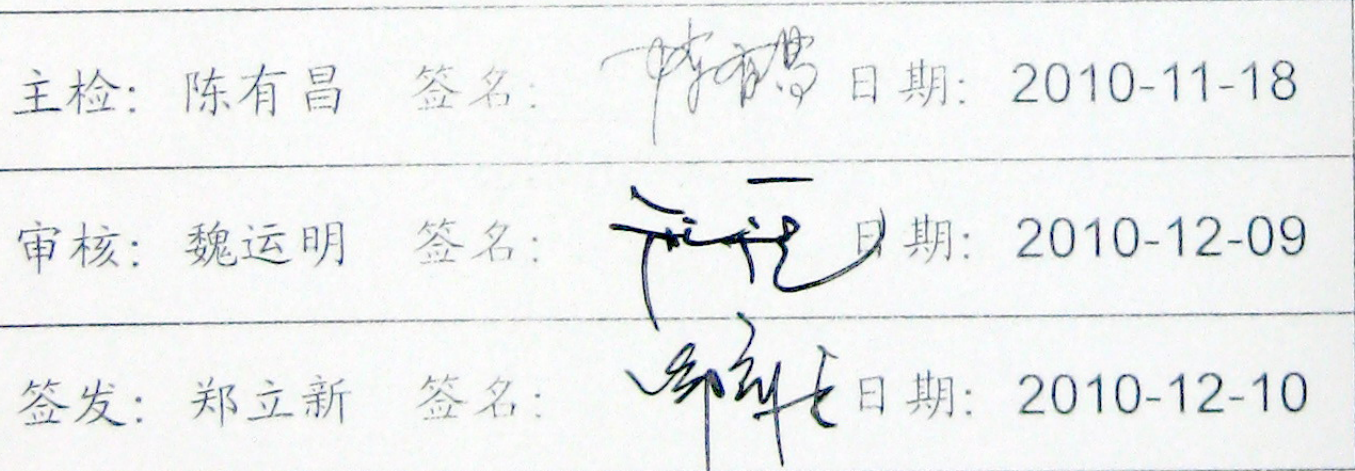 主检: 陈有昌 签名: 陈有昌 日期: 2010-11-18
审核: 魏运明 签名: 日期: 2010-12-09
签发: 郑立新 签名: 日期: 2010-12-10